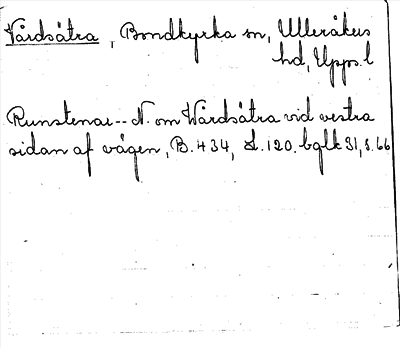 Vårdsätra, Bondkyrka sn, Ulleråkers
hd, Upps. l
Runstenar -- N. om Wårdsätra vid vestra
sidan af vägen, B. 434, L. 120. bglk 31, s. 66